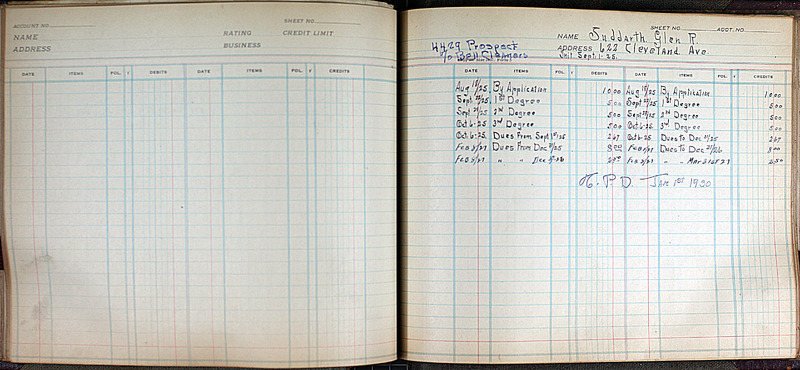 SHEET NO.
ACCOUNT NO.
NAME RATING CREDIT LIMIT
ADDRESS BUSINESS
DATE ITEMS FOL. √ DEBITS DATE ITEMS FOL. √ CREDITS
SHEET NO. ACCT. NO.
NAME Suddarth Glen R.
4429 Prospect ADDRESS 622 Cleveland Ave.
c/o Bell Cleaners Until Sept. 1-25.
DATE ITEMS FOL. √ DEBITS DATE ITEMS FOL. √ CREDITS
Aug 18/25 By Application 10 00 Aug 18/25 By Application 10 00
Sept 1st Degree 5 00 Sept 1st Degree 5 00
Sept 2nd Degree 5 00 Sept 2nd Degree 5 00
Oct 6-25 3rd Degree 5 00 Oct 6-25 3rd Degree 5 00
Oct 6-25. Dues From Sept 1st/25 2 67 Oct 6-25 Dues To Dec 31/25 2 67
Feb Dues From Dec 31/25 8 00 Feb Dues To Dec 31/26 8 00
Feb 2/27 " " Dec Feb 2/27 " " Mar 31st 27 2 50
N. P. D. Jan 1st 1930